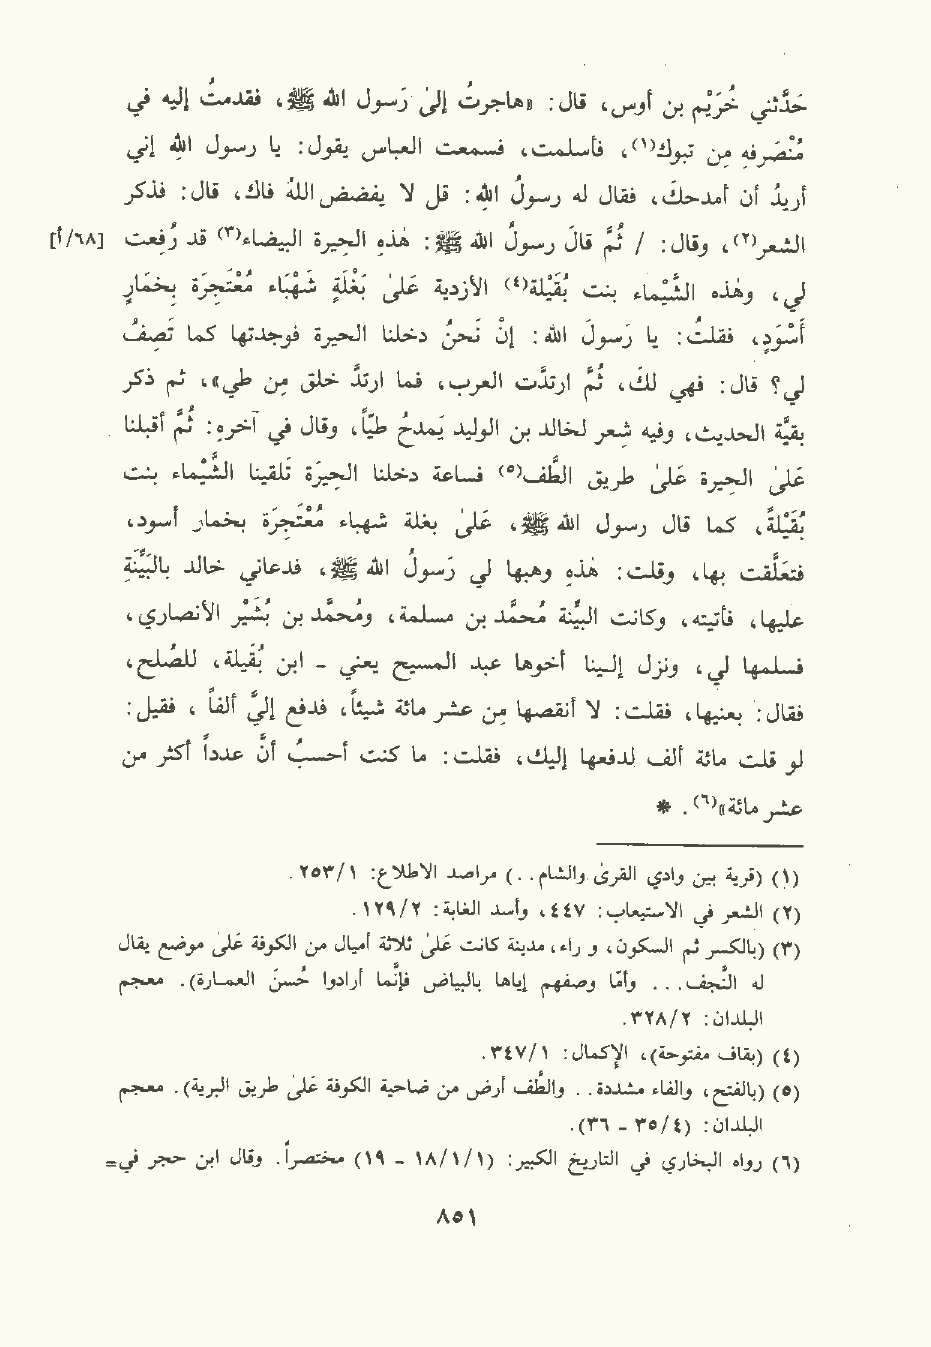 حَدَّثني خُرَيْم بن أوس، قال: «هاجرتُ إلىٰ رَسول الله ﷺ، فقدمتُ إليه في
مُنْصَرفِه من تبوك(١)، فأسلمت، فسمعت العباس يقول: يا رسول اللهِ إني
أريدُ أن أمدحكَ، فقال له رسولُ الله: قل لا يفضض اللهُ فاك، قال: فذكر
الشعر(٢)، وقال: / ثُمَّ قالَ رسولُ الله ﷺ: هٰذِه الحِيرة البيضاء(٣) قد رُفِعت [٦٨/أ]
لي، وهٰذه الشَّيْماء بنت بُقَيْلة(٤) الأزدية عَلىٰ بَغْلَةٍ شَهْبَاء مُعْتَجِرَة بِخمَارٍ
أَسْوَدٍ، فقلتُ: يا رَسولَ الله: إنْ نَحنُ دخلنا الحِيرة فوجدتها كما تَصِفُ
لي؟ قال: فهي لكَ، ثُمَّ ارتدَّت العرب، فما ارتدَّ خلق مِن طي»، ثم ذكر
بقيَّة الحديث، وفيه شعر لخالد بن الوليد يَمدحُ طيَّاً، وقال في آخرِه: ثُمَّ أقبلنا
عَلىٰ الحِيرة عَلىٰ طريق الطَّف(٥) فساعة دخلنا الحِيرَة تلقينا الشَّيْماء بنت
بُقَيْلَةَ، كما قال رسول الله ﷺ، عَلىٰ بغلة شهباء مُعْتَجِرَة بخمار أسود،
فتعَلَّقت بها، وقلت: هٰذِه وهبها لي رَسولُ الله ﷺ، فدعاني خالد بالبَيِّنَةِ
عليها، فأتيته، وكانت البيِّنة مُحمَّد بن مسلمة، ومُحمَّد بن بُشَيْر الأنصاري،
فسلمها لي، ونزل إلينا أخوها عبد المسيح يعني - ابن بُقَيلة، للصُلح،
فقال: بعنيها، فقلت: لا أنقصها مِن عشر مائة شيئاً، فدفع إليَّ ألفاً، فقيل:
لو قلت مائة ألف لدفعها إليك، فقلت: ما كنت أحسبُ أنَّ عدداً أكثر من
عشر مائة»(٦). *
(١) (قرية بين وادي القرىٰ والشام..) مراصد الاطلاع: ٢٥٣/١.
(٢) الشعر في الاستيعاب: ٤٤٧، وأسد الغابة: ١٢٩/٢.
(٣) (بالكسر ثم السكون، و راء، مدينة كانت عَلىٰ ثلاثة أميال من الكوفة عَلىٰ موضع يقال
له النَّجف... وأمّا وصفهم إياها بالبياض فإنَّما أرادوا حُسنَ العمارة). معجم
البلدان: ٣٢٨/٢.
(٤) (بقاف مفتوحة)، الإكمال: ٣٤٧/١.
(٥) (بالفتح، والفاء مشددة.. والطَّف أرض من ضاحية الكوفة عَلىٰ طريق البرية). معجم
البلدان: (٣٥/٤ - ٣٦).
(٦) رواه البخاري في التاريخ الكبير: (١٨/١/١ - ١٩) مختصراً. وقال ابن حجر في=
٨٥١